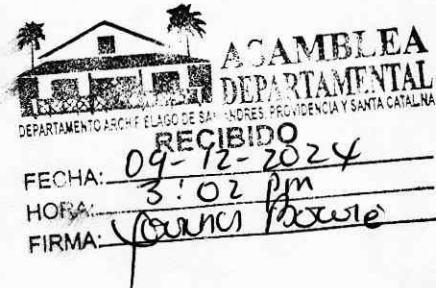 ASAMBLEA
DEPARTAMENTAL
DEPARTAMENTO ARCHIPIELAGO DE SAN ANDRES, PROVIDENCIA Y SANTA CATALINA
RECIBIDO
FECHA: 09-12-2024
HORA: 3:02 pm
FIRMA: